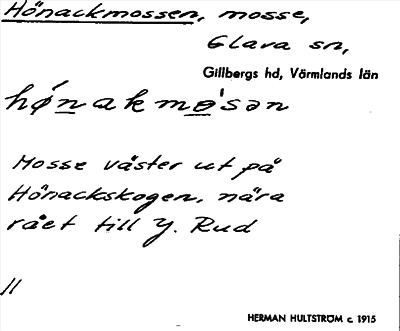 Hönackmossen, mosse,
Glava sn,
Gillbergs hd, Värmlands län
hǿnakmo̍sən
Mosse väster ut på
Hönackskogen, nära
rået till Y. Rud
11
HERMAN HULTSTRÖM c. 1915